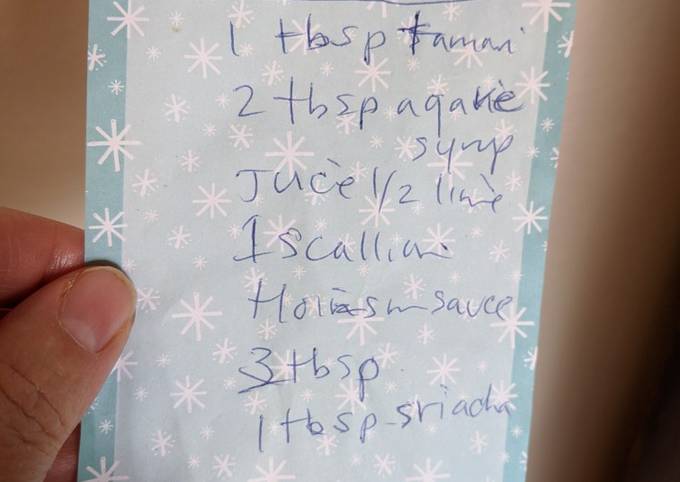 1 tbsp tamari
2 tbsp agave
syrup
Juce 1/2 lime
1 scallion
Hoisin sauce
3 tbsp
1 tbsp sriacha